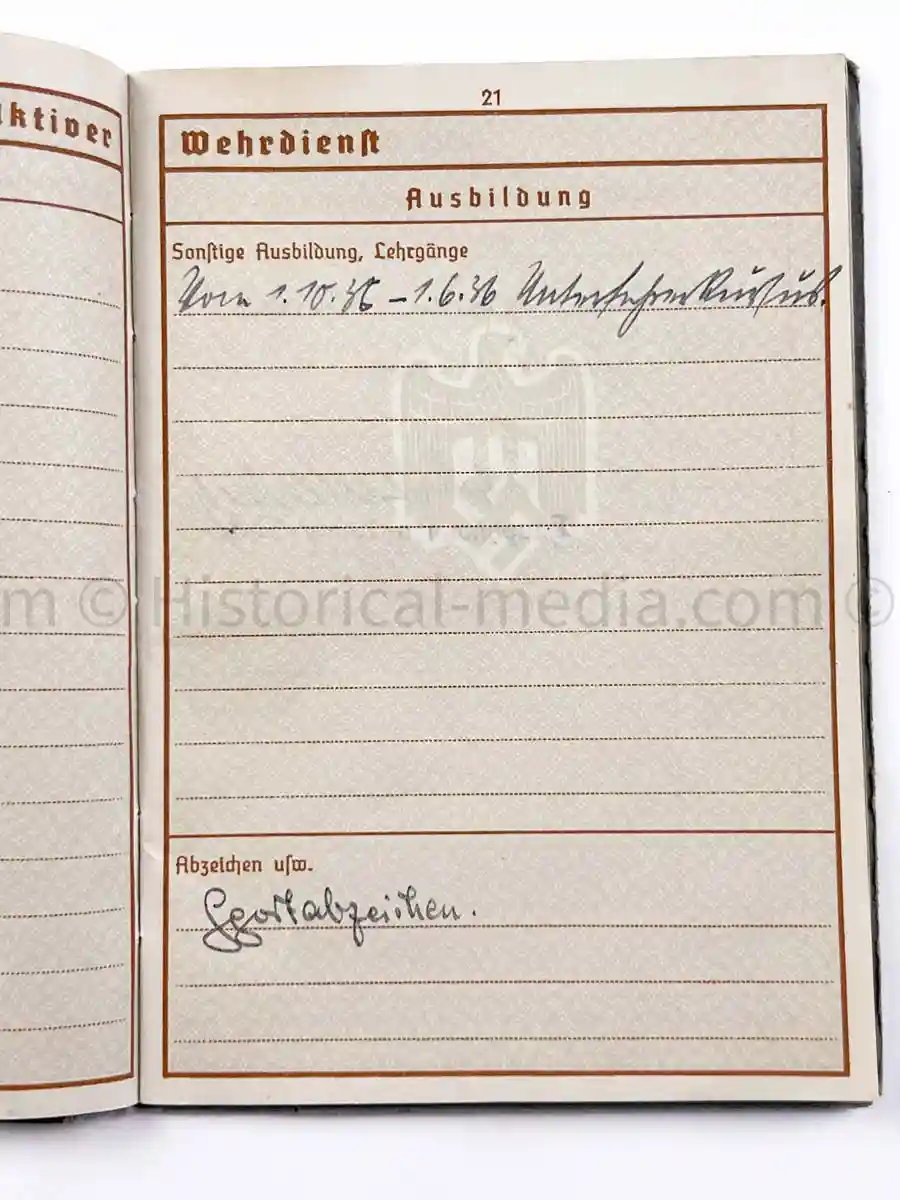 aktiver
21
Wehrdienst
Ausbildung
Sonstige Ausbildung, Lehrgänge
Vom 1.10.35 – 1.6.36 Unterführerkursus.
om © Historical-media.com ©
Abzeichen usw.
Sportabzeichen.